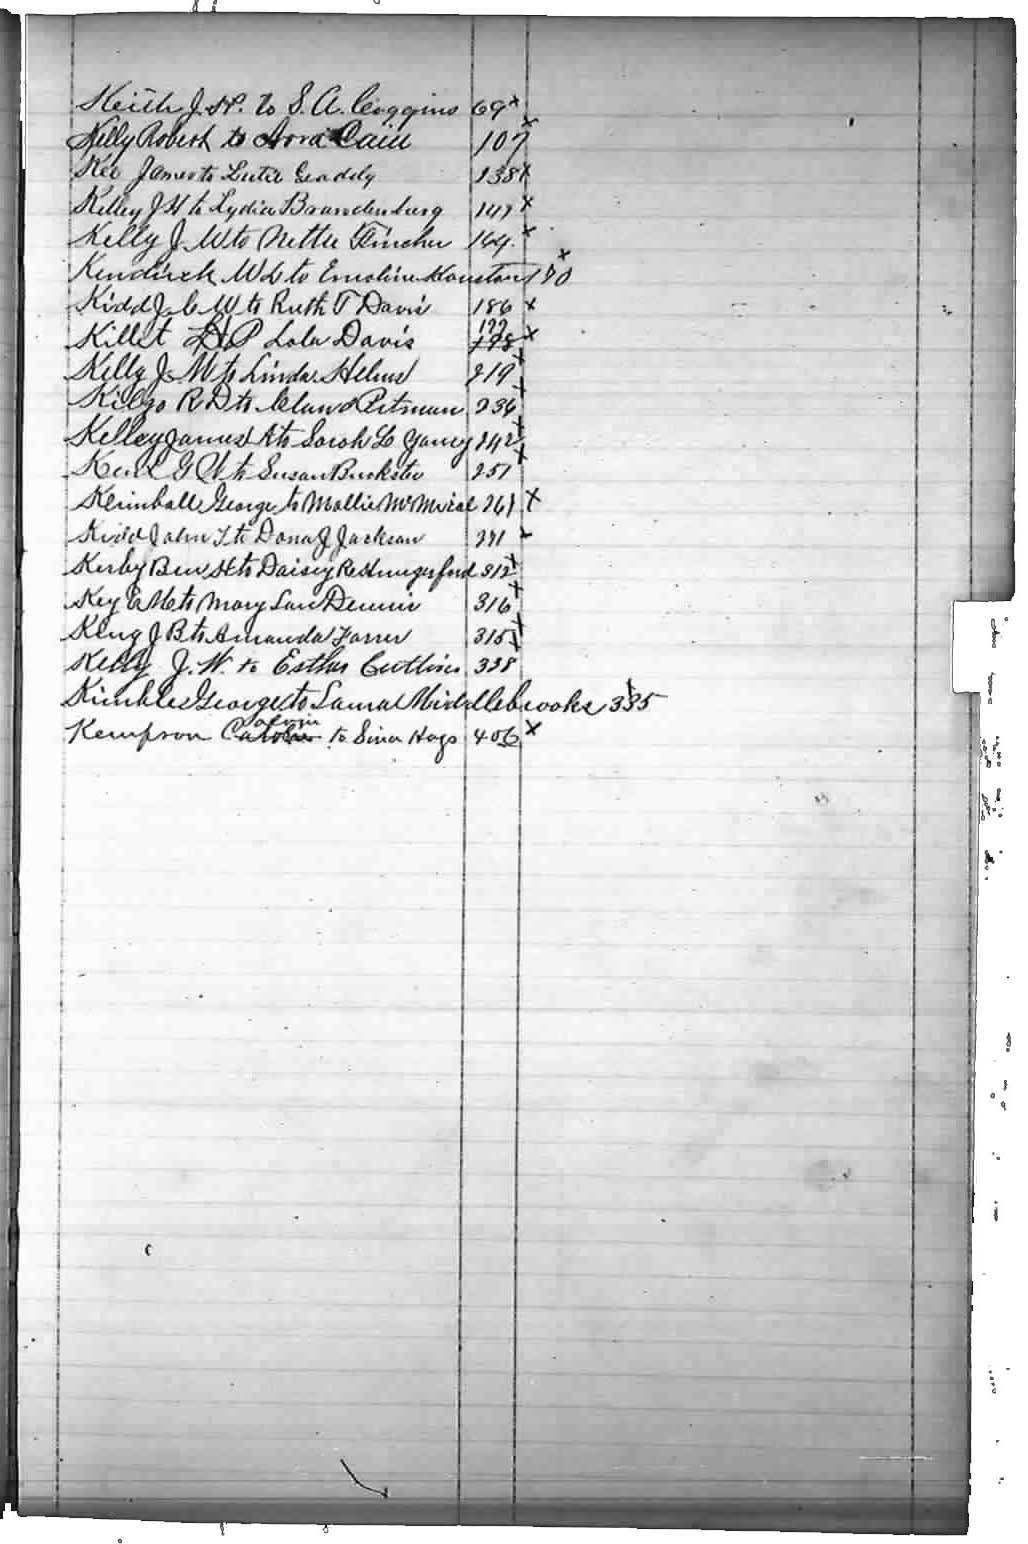 Keith J. H. to S. A. Coggins 69 x
Kelly Robert to Nora Cain 107 x
Kee James to Lutie Geaddy 138 x
Kelley J H to Lydia Brandenburg 147 x
Kelly J. W to Nettie Fincher 164 x
Kendrick W L to Emoline Houston 170 x
Kidd J. C W to Ruth T Davis 186 x
Killet L H P Lola Davis 177 198 x
Kelly J. M to Linda Helms 219 x
Kilgo R D to Pitman 236 x
Kelley James A to Sarah L Yancy 242 x
Kent G W to Susan 251 x
Kimball George to Mollie 261 x
Kidd John T to Dona J Jackson 291 x
Kerby Ben H to Daisy Re Hungerford 312 x
Key E M to Mary Lou Dennis 316 x
King J B to Amanda Farrer 315 x
Kelly J. W. to Esther 338
Kimble George to Laura Middlebrooks 335
Kempson to Sina Hays 406 x